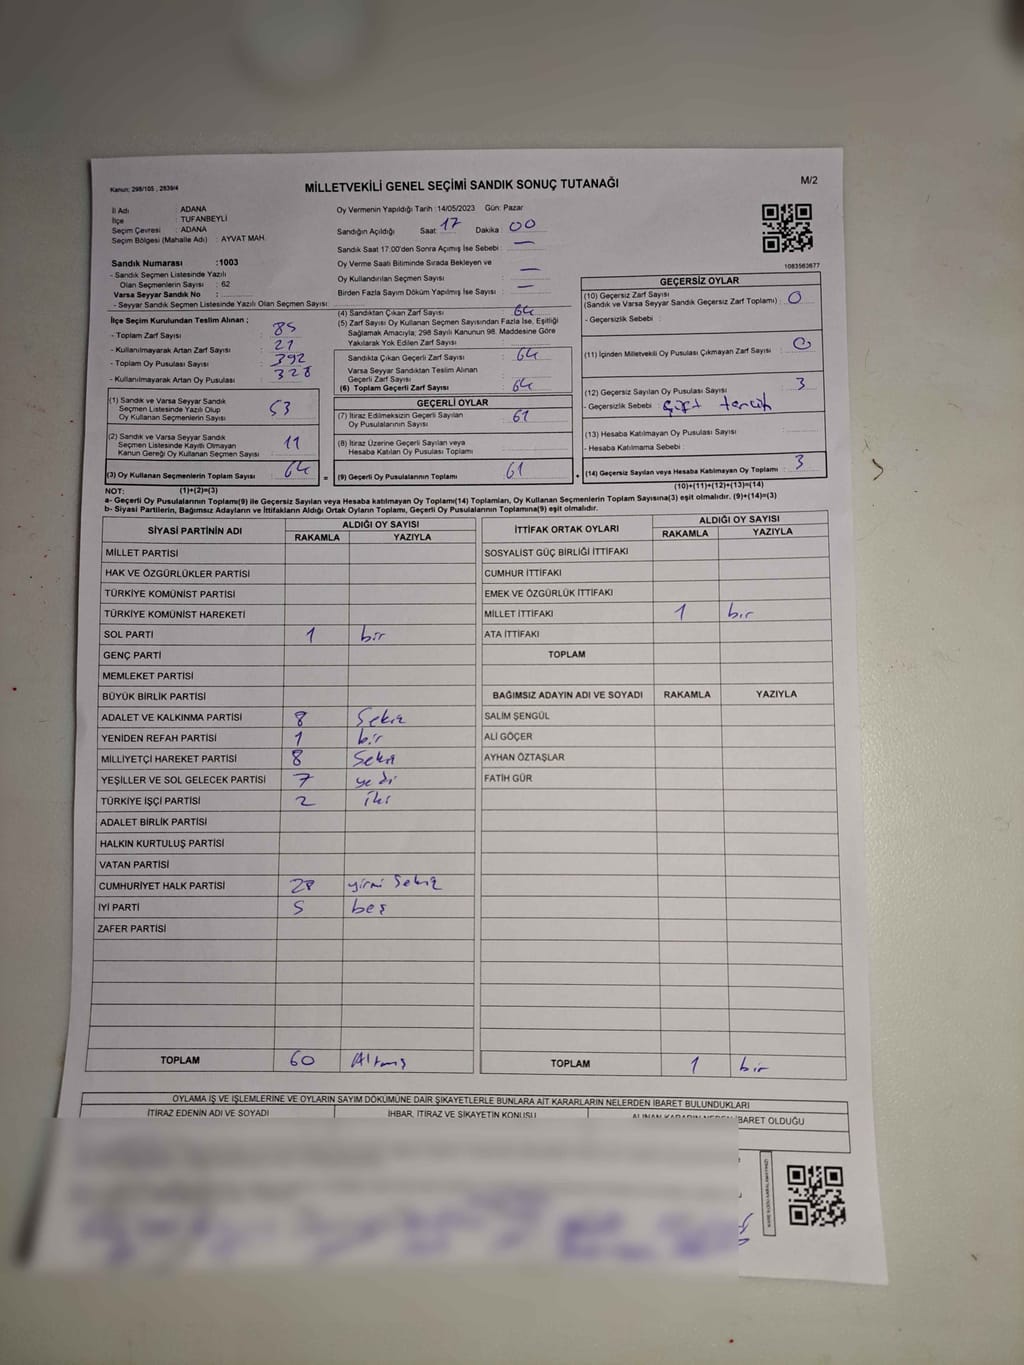 Kanun: 298/105 , 2839/4
MİLLETVEKİLİ GENEL SEÇİMİ SANDIK SONUÇ TUTANAĞI
M/2
İl Adı : ADANA
İlçe : TUFANBEYLİ
Seçim Çevresi : ADANA
Seçim Bölgesi (Mahalle Adı) : AYVAT MAH.
Sandık Numarası :1003
- Sandık Seçmen Listesinde Yazılı
Olan Seçmenlerin Sayısı : 62
Varsa Seyyar Sandık No :
- Seyyar Sandık Seçmen Listesinde Yazılı Olan Seçmen Sayısı:
Oy Vermenin Yapıldığı Tarih :14/05/2023 Gün: Pazar
Sandığın Açıldığı Saat : 17 Dakika : 00
Sandık Saat 17.00'den Sonra Açımış İse Sebebi : —
Oy Verme Saati Bitiminde Sırada Bekleyen ve
Oy Kullandırılan Seçmen Sayısı : —
Birden Fazla Sayım Döküm Yapılmış İse Sayısı : —
1083563677
İlçe Seçim Kurulundan Teslim Alınan ;
- Toplam Zarf Sayısı : 85
- Kullanılmayarak Artan Zarf Sayısı : 21
- Toplam Oy Pusulası Sayısı : 392
- Kullanılmayarak Artan Oy Pusulası : 328
(1) Sandık ve Varsa Seyyar Sandık
Seçmen Listesinde Yazılı Olup
Oy Kullanan Seçmenlerin Sayısı 53
(2) Sandık ve Varsa Seyyar Sandık
Seçmen Listesinde Kayıtlı Olmayan
Kanun Gereği Oy Kullanan Seçmen Sayısı 11
(3) Oy Kullanan Seçmenlerin Toplam Sayısı 64 =
(1)+(2)=(3)
(4) Sandıktan Çıkan Zarf Sayısı : 64
(5) Zarf Sayısı Oy Kullanan Seçmen Sayısından Fazla İse, Eşitliği
Sağlamak Amacıyla; 298 Sayılı Kanunun 98. Maddesine Göre
Yakılarak Yok Edilen Zarf Sayısı :
Sandıkta Çıkan Geçerli Zarf Sayısı : 64
Varsa Seyyar Sandıktan Teslim Alınan
Geçerli Zarf Sayısı :
(6) Toplam Geçerli Zarf Sayısı : 64
GEÇERLİ OYLAR
(7) İtiraz Edilmeksizin Geçerli Sayılan
Oy Pusulasının Sayısı : 61
(8) İtiraz Üzerine Geçerli Sayılan veya
Hesaba Katılan Oy Pusulası Toplamı :
(9) Geçerli Oy Pusulalarının Toplamı 61 +
GEÇERSİZ OYLAR
(10) Geçersiz Zarf Sayısı
(Sandık ve Varsa Seyyar Sandık Geçersiz Zarf Toplamı) : 0
- Geçersizlik Sebebi :
(11) İçinden Milletvekili Oy Pusulası Çıkmayan Zarf Sayısı : 0
(12) Geçersiz Sayılan Oy Pusulası Sayısı : 3
- Geçersizlik Sebebi : çift tercih
(13) Hesaba Katılmayan Oy Pusulası Sayısı :
- Hesaba Katılmama Sebebi :
(14) Geçersiz Sayılan veya Hesaba Katılmayan Oy Toplamı : 3
(10)+(11)+(12)+(13)=(14)
NOT:
a- Geçerli Oy Pusulalarının Toplamı(9) ile Geçersiz Sayılan veya Hesaba katılmayan Oy Toplamı(14) Toplamları, Oy Kullanan Seçmenlerin Toplam Sayısına(3) eşit olmalıdır. (9)+(14)=(3)
b- Siyasi Partilerin, Bağımsız Adayların ve İttifakların Aldığı Ortak Oyların Toplamı, Geçerli Oy Pusulalarının Toplamına(9) eşit olmalıdır.
SİYASİ PARTİNİN ADI ALDIĞI OY SAYISI
RAKAMLA YAZIYLA
MİLLET PARTİSİ
HAK VE ÖZGÜRLÜKLER PARTİSİ
TÜRKİYE KOMÜNİST PARTİSİ
TÜRKİYE KOMÜNİST HAREKETİ
SOL PARTİ 1 bir
GENÇ PARTİ
MEMLEKET PARTİSİ
BÜYÜK BİRLİK PARTİSİ
ADALET VE KALKINMA PARTİSİ 8 Sekiz
YENİDEN REFAH PARTİSİ 1 bir
MİLLİYETÇİ HAREKET PARTİSİ 8 Sekiz
YEŞİLLER VE SOL GELECEK PARTİSİ 7 yedi
TÜRKİYE İŞÇİ PARTİSİ 2 iki
ADALET BİRLİK PARTİSİ
HALKIN KURTULUŞ PARTİSİ
VATAN PARTİSİ
CUMHURİYET HALK PARTİSİ 28 yirmi Sekiz
İYİ PARTİ 5 beş
ZAFER PARTİSİ
TOPLAM 60 Altmış
İTTİFAK ORTAK OYLARI ALDIĞI OY SAYISI
RAKAMLA YAZIYLA
SOSYALİST GÜÇ BİRLİĞİ İTTİFAKI
CUMHUR İTTİFAKI
EMEK VE ÖZGÜRLÜK İTTİFAKI
MİLLET İTTİFAKI 1 bir
ATA İTTİFAKI
TOPLAM
BAĞIMSIZ ADAYIN ADI VE SOYADI RAKAMLA YAZIYLA
SALİM ŞENGÜL
ALİ GÖÇER
AYHAN ÖZTAŞLAR
FATİH GÜR
TOPLAM 1 bir
OYLAMA İŞ VE İŞLEMLERİNE VE OYLARIN SAYIM DÖKÜMÜNE DAİR ŞİKAYETLERLE BUNLARA AİT KARARLARIN NELERDEN İBARET BULUNDUKLARI
İTİRAZ EDENİN ADI VE SOYADI
İHBAR, İTİRAZ VE ŞİKAYETİN KONUSU
ALINAN KARARIN NEDEN İBARET OLDUĞU